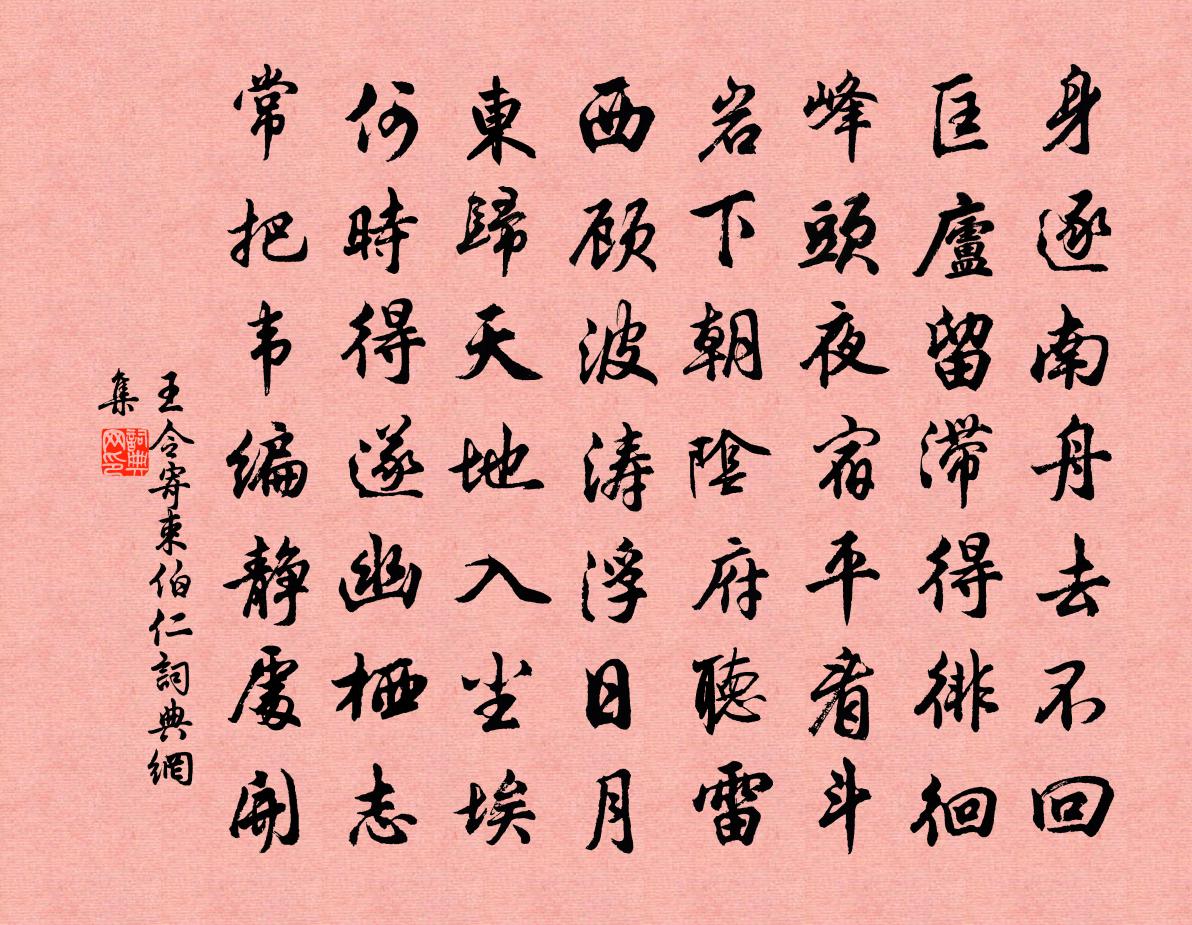 身逐南舟去不回
匡廬留滯得徘徊
峰頭夜宿平看斗
岩下朝陰府聽雷
西顾波涛浮日月
東歸天地入尘埃
何時得遂幽栖志
常把韦编靜處開
王令寄束伯仁詞典網
集
詞典网印